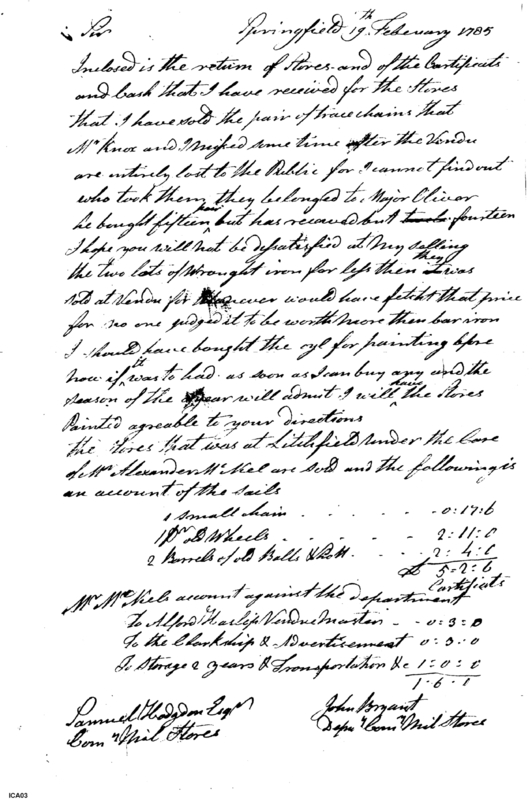 Sir Springfield 19th Febeuary 1785
Inclosed is the return of Stores and of the Certificats
and Cash that I have received for the Stores
that I have sold the pair of trace chains that
Mr Knox and I missed some time after the Vendu
are intirely lost to the Public for I cannot find out
who took them they belonged to Major Olivor
he bought fifteen pair but has receaved but fourteen
I hope you will not be dissatisfied at my selling
the two lots of Wrought iron for less then they was
sold at Vendu for never would have fetcht that price
for no one judged it to be worth more then bar iron
I should have bought the oyl for painting before
now if it was to had as soon as I can buy any and the
season of the year will admit I will have the Stores
Painted agreable to your directions
the Stores that was at Litchfield under the Care
of Mr Alexander McNiel are sold and the following is
an account of the sails
1 small chain - 0:17:6
1 Pr old Wheels 2:11:0
2 Barrels of old Balls & Shott 2:4:0
£ 5:2:6
Certificats
Mr McNiels account against the department
To Alfod Haslip Vendue master - 0:3:0
To the Clarkship & Advertisement 0:3:0
To Storage 2 years & Transportation &c 1:0:0
1:6:0
Samuel Hodgdon Esqr John Bryant
Comy Mil Stores Depy Comy Mil Stores
ICA03